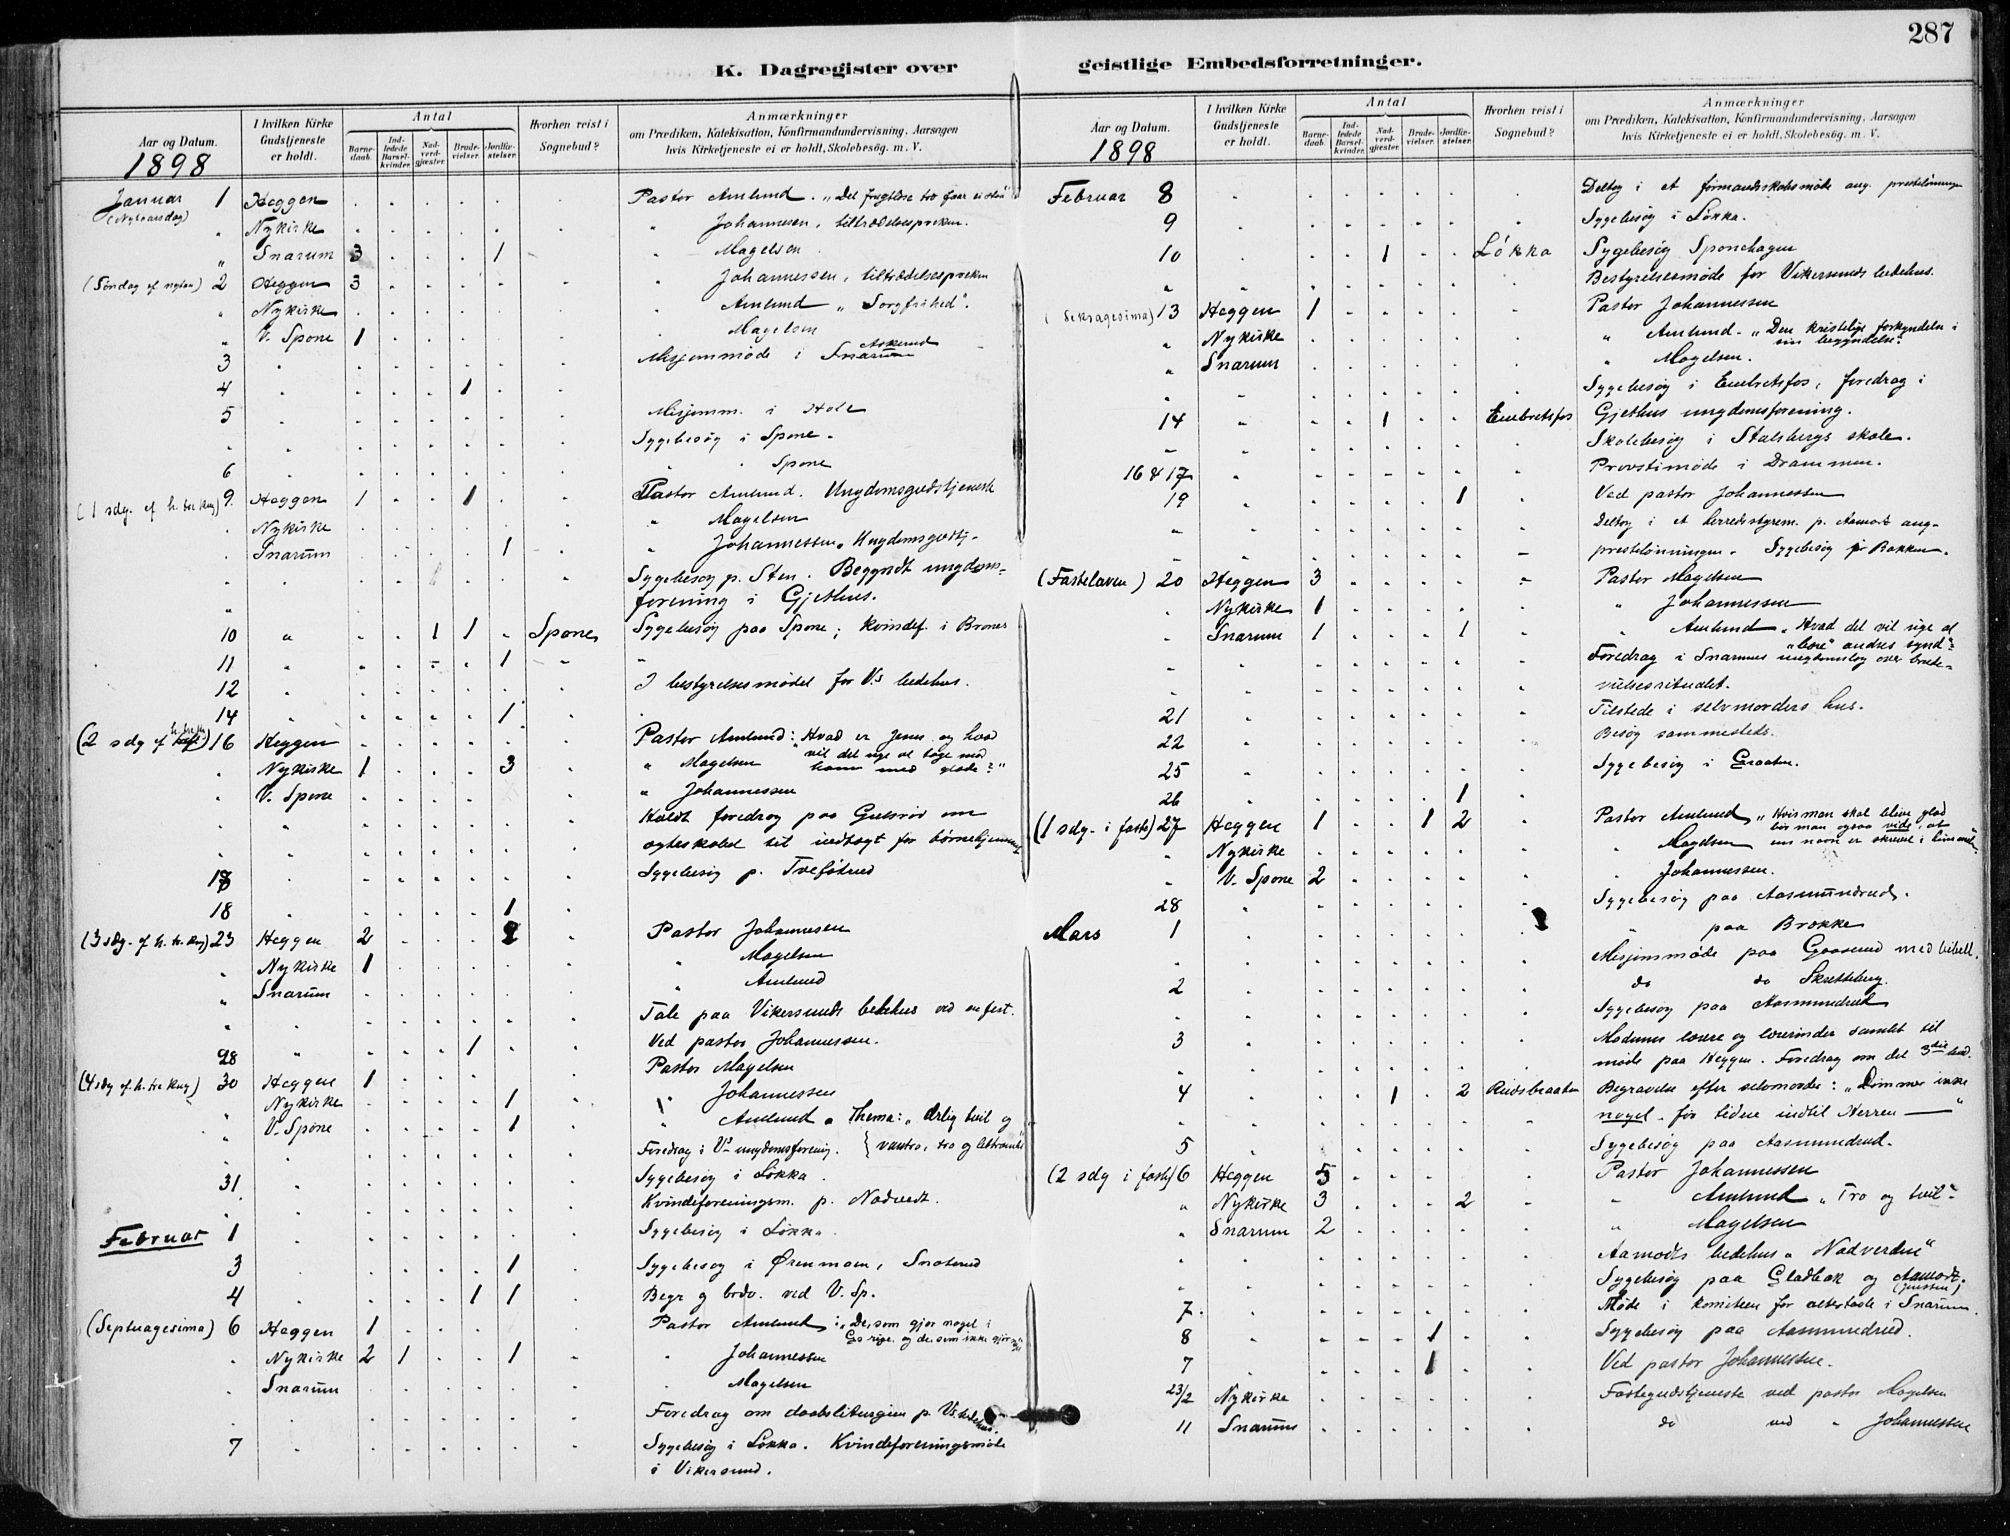 287
K. Dagregister over geistlige Embedsforretninger.
Aar og Datum. I hvilken Kirke Gudstjeneste er holdt. Antal Barnedaab. Indledede Barselkvinder. Nadverdgjæster. Brudevielser. Jordfæstelser. Hvorhen reist i Sognebud? Anmærkninger om Prædiken, Katekisation, Konfirmandundervisning, Aarsagen hvis Kirketjeneste ei er holdt, Skolebesög. m. V.
1898
Januar 1 Heggen Pastor Amlund. „Det frugtløse
(Nytaarsdag) „ Nykirke „ Johannessen, tiltrædelsespreken.
„ Snarum 3 1 „ Magelsen
(Søndag ef nytaar) 2 Heggen 3 „ Johannessen, tiltrædelsespreken
„ Nykirke „ Amlund „Sorgfrihed".
„ V. Spone 1 „ Magelsen
3 Misjonmøde i Snarum Askerud
4 1
5 Misjonm. i Hole
Sygebesøg i Spone.
6 „ „ Spone
(1 sdg. ef h. tre kng) 9. Heggen 1 1 Pastor Amlund. Ungdomsgudstjeneste
Nykirke „ Magelsen
Snarum 1 „ Johannessen. Ungdomsgudstj.
Sygebesøg p. Sten. Begyndt ungdoms-
forening i Gjethus.
10 „ 1 1 Spone Sygebesøg paa Spone; kvindef. i
11 „ 1 „
12 I bestyrelsesmødet for V.s bedehus.
14 1
(2 sdg ef) 16 Heggen Pastor Amlund: „Hvad er Jesus og hvad
Nykirke 1 3 „ Magelsen vil det sige at tage mod
V. Spone „ Johannessen ham med glæde?"
Holdt foredrag paa Gulsrud om
egteskabet til indtægt for børnehjemmet
Sygebesøg p.
18 1
(3 sdg. ef h. tr. kng) 23 Heggen 2 2 Pastor Johannessen
„ Nykirke 1 „ Magelsen
„ Snarum „ Amlund
„ Tale paa Vikersunds bedehus ved en fest.
28 „ 1 Ved pastor Johannessen.
Pastor Magelsen
(4 sdg ef. h. tre kng) 30 Heggen 1
„ Nykirke 1 „ Johannessen
„ V. Spone 1 „ Amlund. Thema: „ærlig tvil og
Foredrag i V.s ungdomsforening. { vantro, tro og lettroenhed
31 Sygebesøg i Løkka
Kvindeforeningsm. p. Nadvedt.
Februar 1 Sygebesøg i Løkka.
3 1 Sygebesøg i Ørenmoen, Snoterud
4 1 1 Begr og brdv. ved V. Sp.
(Septuagesima) 6 Heggen 1 Pastor Amlund: „De, som gjør noget i
Gs rige og de, som ikke gjør
Nykirke 2 1 1 „ Johannessen
Snarum „ Magelsen
Foredrag om daabsliturgien p. Vs. bedehus.
7 Sygebesøg i Løkka. Kvindeforeningsmøde
i Vikersund.
Aar og Datum. I hvilken Kirke Gudstjeneste er holdt. Antal Barnedaab. Indledede Barselkvinder. Nadverdgjæster. Brudevielser. Jordfæstelser. Hvorhen reist i Sognebud? Anmærkninger om Prædiken, Katekisation, Konfirmandundervisning, Aarsagen hvis Kirketjeneste ei er holdt, Skolebesög. m. V.
1898
Februar 8 Deltog i et formandsskabsmøde ang. prestelønninge
9 Sygebesøg i Løkka.
10 1 Løkka Sygebesøg Sponehagen
„ Bestyrelsesmøde for Vikersunds bedehus.
(Seksagesima) 13 Heggen 1 Pastor Johannessen
„ Nykirke „ Amlund. „Den kristelige forkyndelse i
sin begyndelse".
„ Snarum „ Magelsen.
„ Sygebesøg i Embretsfos, foredrag i
14 „ 1 Embretsfos Gjethus ungdomsforening.
„ Skolebesøg i Stalsbergs skole.
16 & 17 Provstimøde i Drammen.
19 1 Ved pastor Johannessen
„ Deltog i et herredsstyrem. p. Aamot ang.
„ prestelønningen. Sygebesøg Bakken.
(Fastelaven) 20 Heggen 3 Pastor Magelsen
Nykirke 1 „ Johannessen
Snarum 1 1 „ Amlund „Hvad det vil sige at
„bære" andres synd".
Foredrag i Snarums ungdomslag over brude-
vielsesritualet.
21 Tilstede i selvmorders hus.
22 Besøg sammesteds.
25 Sygebesøg i Graaten.
26 1
(1 sdg. i faste) 27 Heggen 1 1 2 Pastor Amlund „Hvis man skal blive glad
bør man ogsaa vide, at
„ Nykirke „ Magelsen ens navn er skrevet i himmelen".
„ V. Spone 2 „ Johannessen.
28 Sygebesøg paa Aasmundrud.
Mars 1 „ paa Brokke
Misjonsmøde paa Gaaserud med bibell.
2 do do Skretteberg.
Sygebesøg paa Aasmundrud
3 Modums lærere og lærerinder samlet til
møde paa Heggen. Foredrag om det 3die bud.
4 1 2 Begravelse efter selvmorder: „Dømmer ikke
noget før tiden indtil Herren —"
5 Sygebesøg paa Aasmundrud.
(2 sdg i faste) 6 Heggen 5 Pastor Johannessen
„ Nykirke 3 2 „ Amlund „Tro og tvil".
„ Snarum 2 „ Magelsen
Aamots bedehus „Nadverden"
Sygebesøg paa Gladbak og Aamodt.
7 Møde i komiteen for altertavle i Snarum.
8 1 Sygebesøg paa Aasmundrud.
7 1 Ved pastor Johannessen.
23/2 Nykirke Fastegudstjeneste ved pastor Magelsen
11 Snarum do ved „ Johannessen